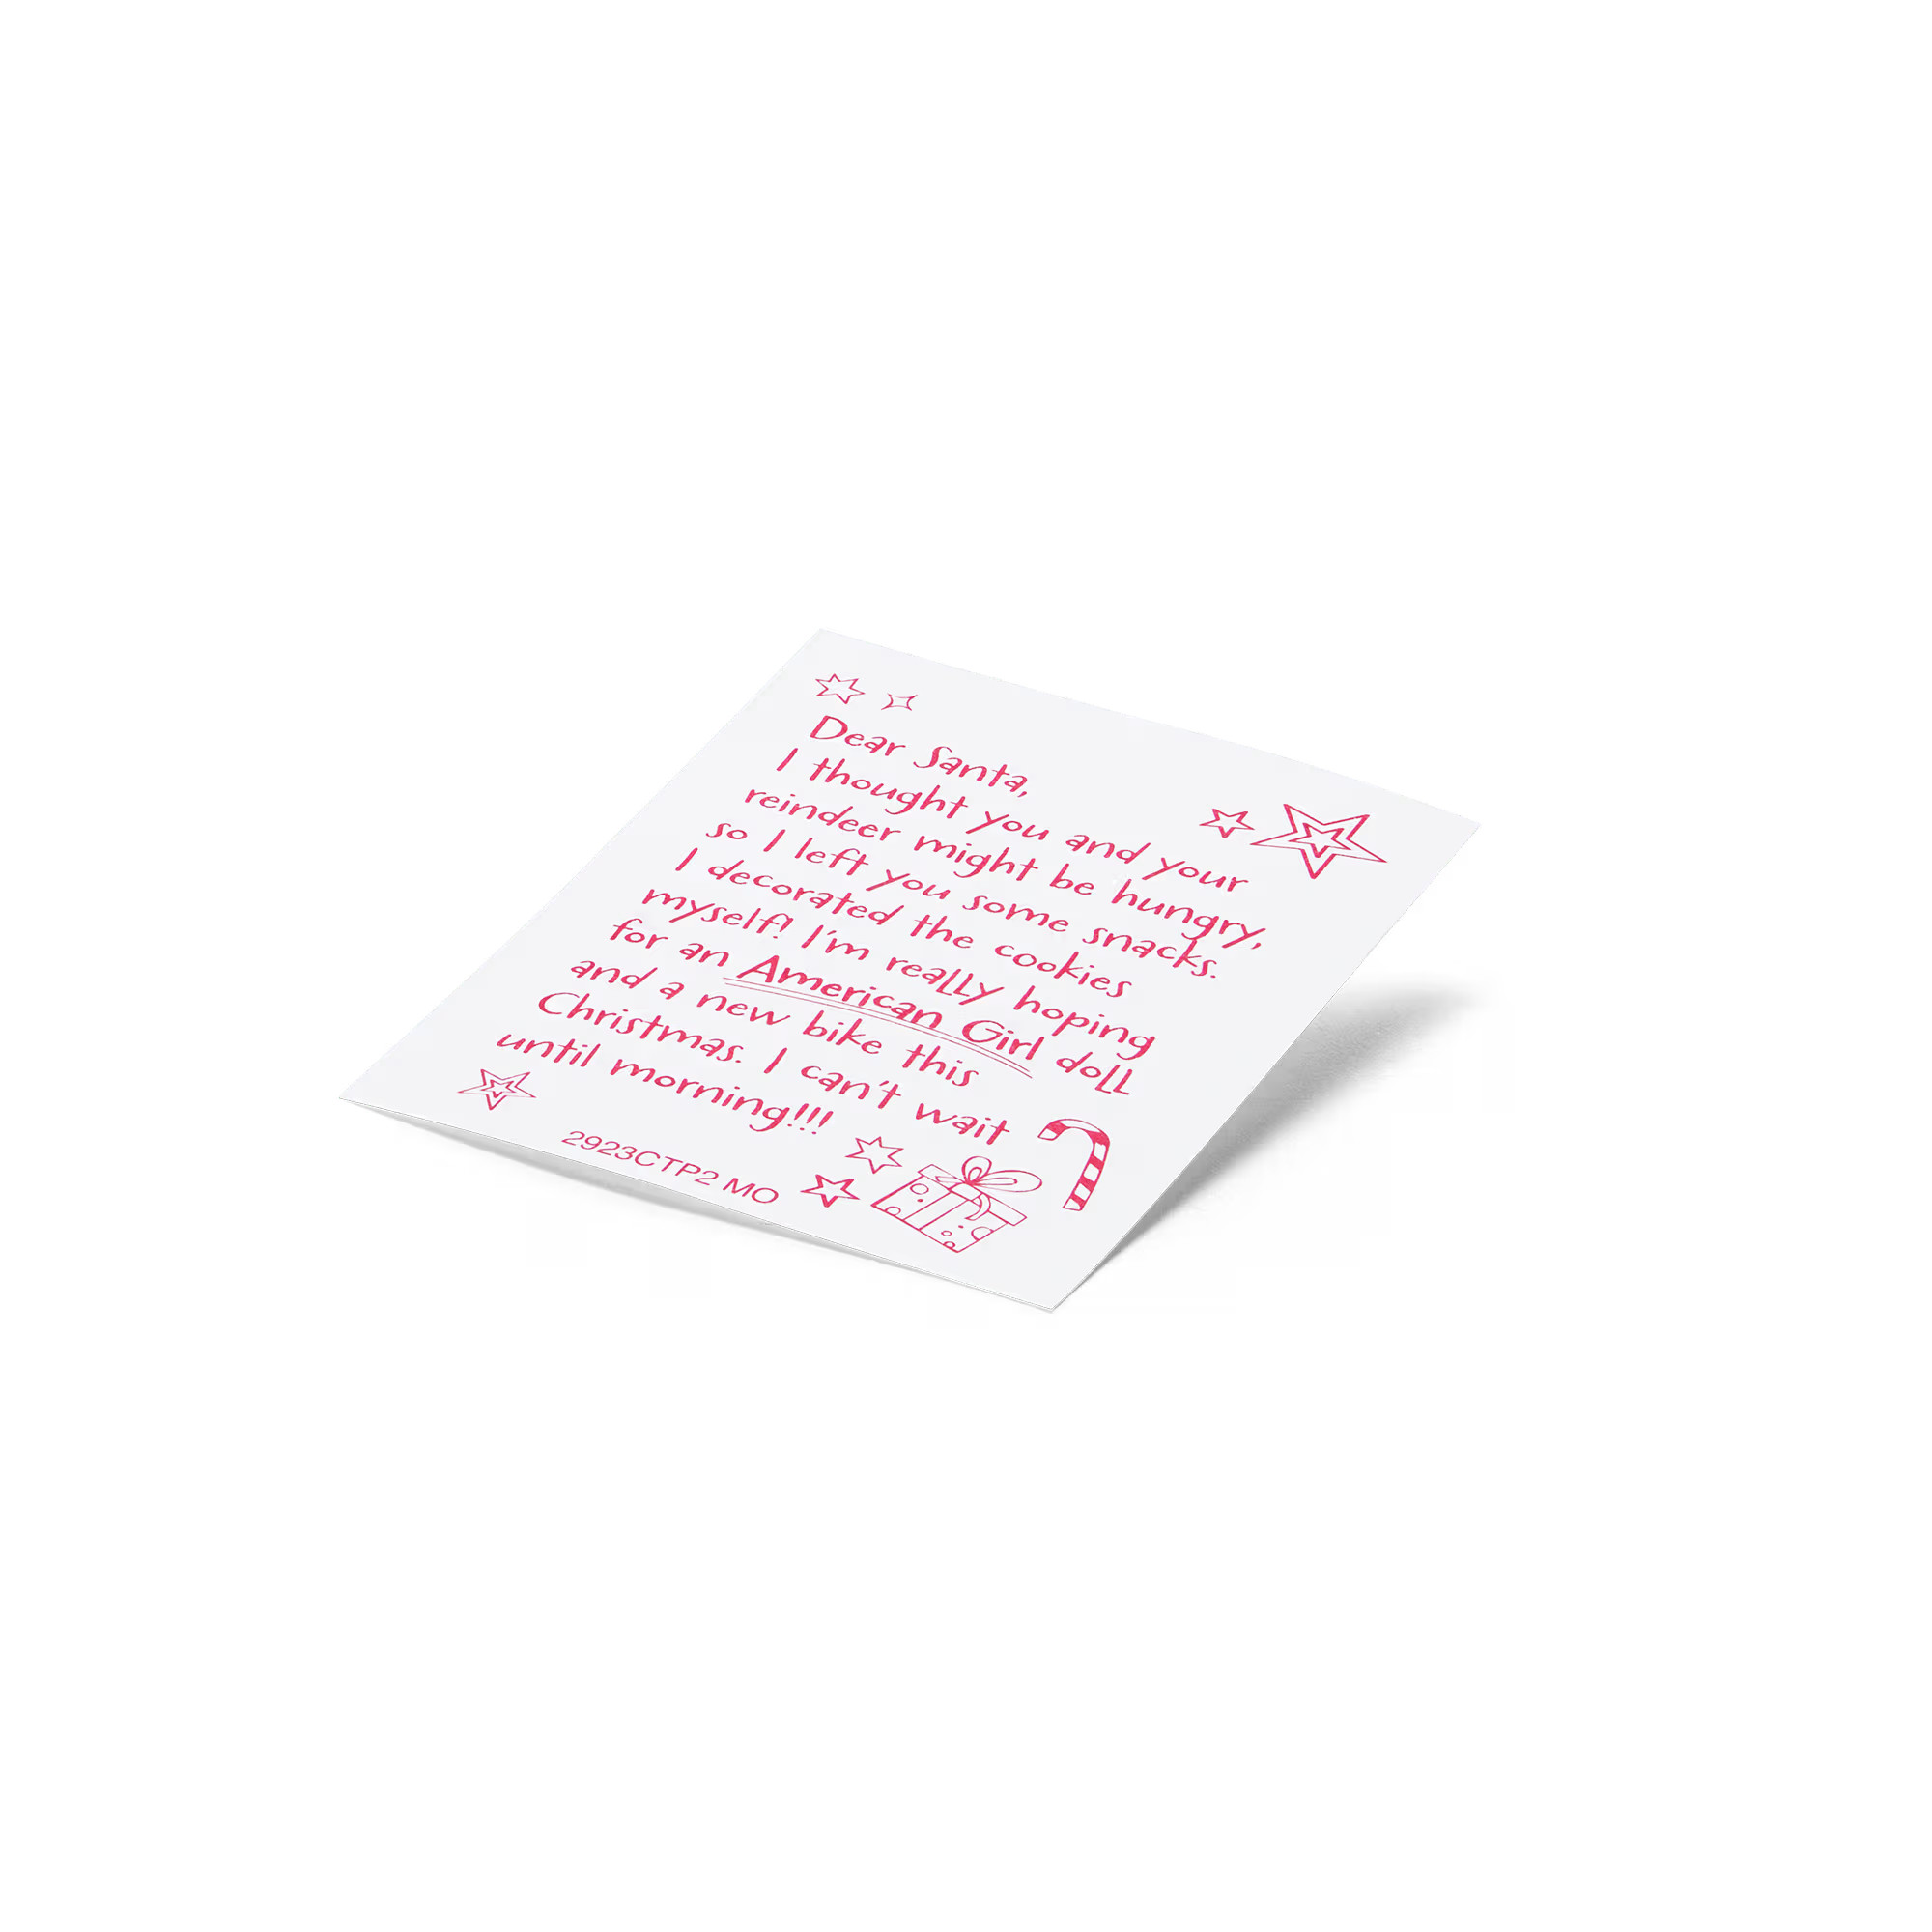 Dear Santa,
I thought you and your
reindeer might be hungry,
so I left you some snacks.
I decorated the cookies
myself! I'm really hoping
for an American Girl doll
and a new bike this
Christmas. I can't wait
until morning!!!
2923CTP2 MO